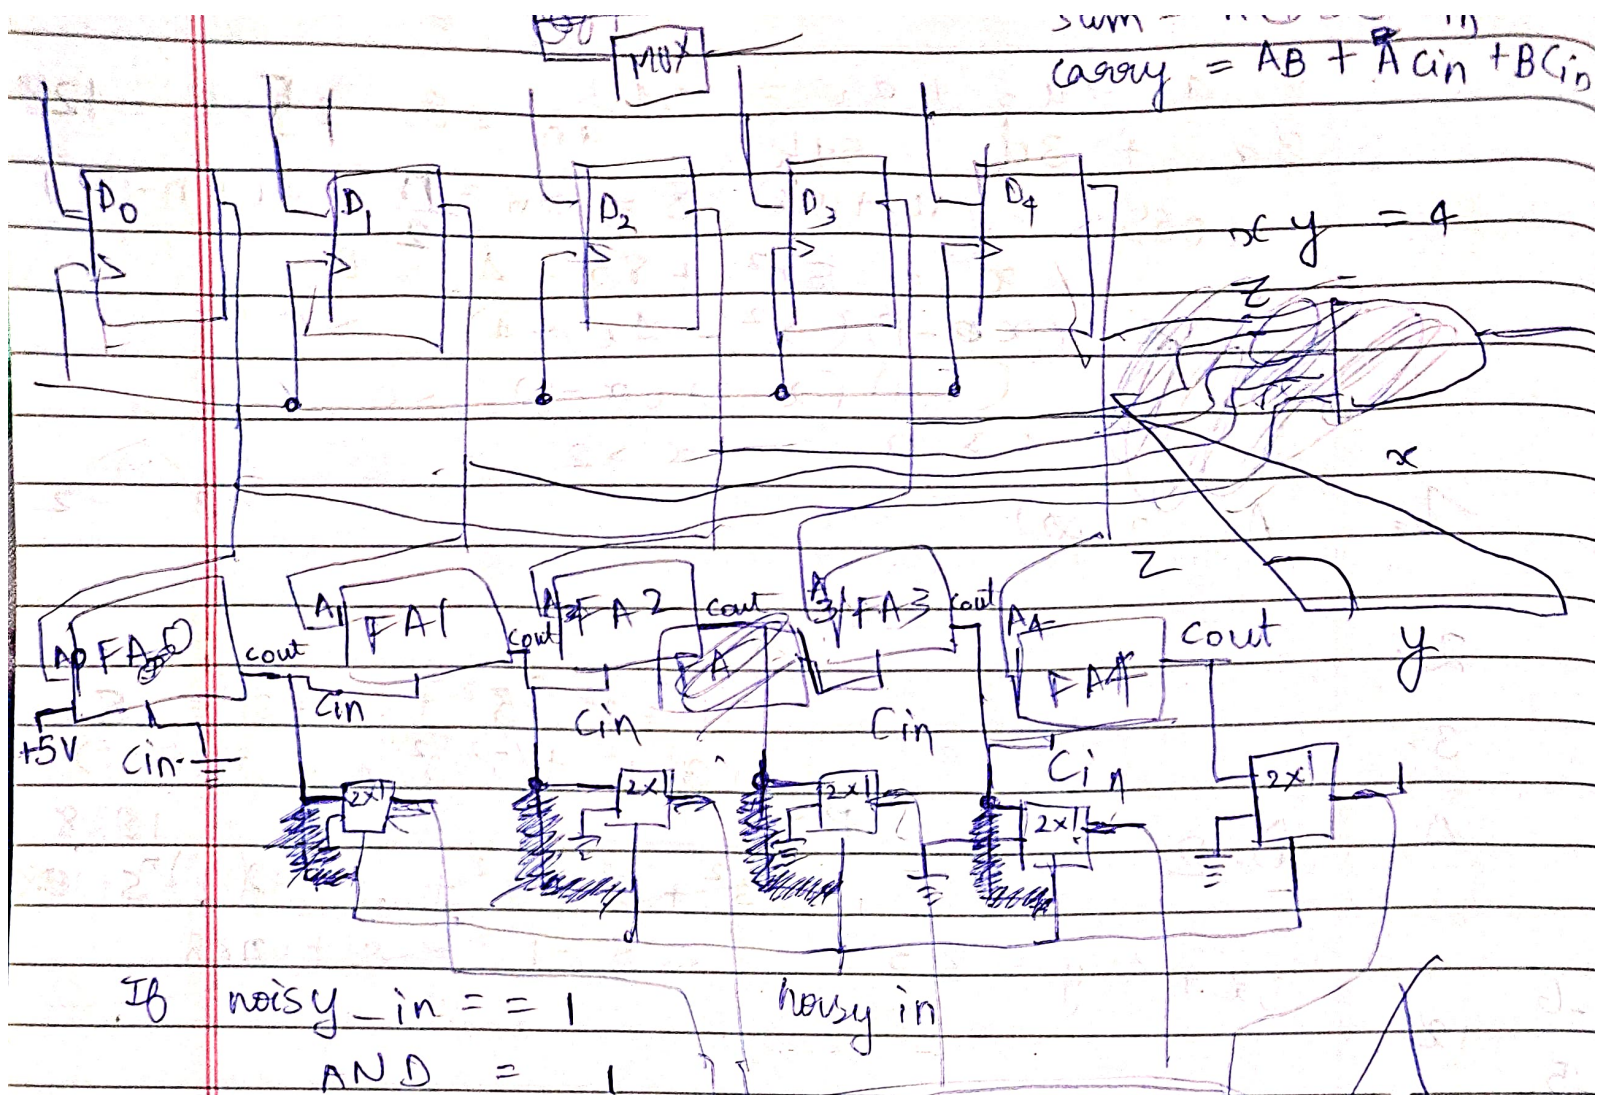 MUX
carry = AB + A Cin + B Cin
D0 D1 D2 D3 D4
xy = 4
z
x
z
y
A0 FA0 cout A1 FA1 cout A2 FA2 cout A3 FA3 cout A4 FA4 cout
FA
+5V Cin Cin Cin Cin Cin
2x1 2x1 2x1 2x1 2x1
If noisy_in == 1 noisy in
AND = 1